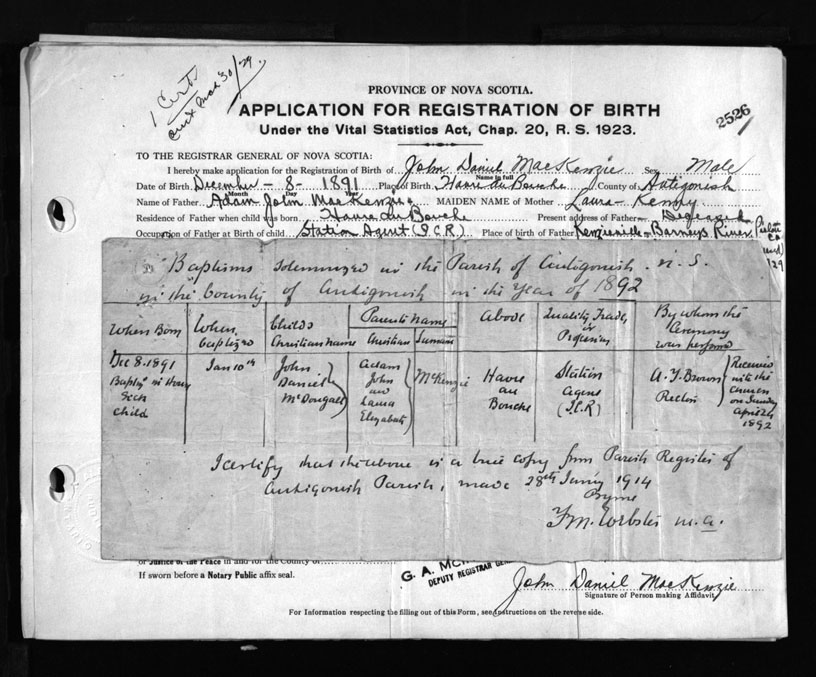 1 Cert
Mch 30/29.
PROVINCE OF NOVA SCOTIA.
APPLICATION FOR REGISTRATION OF BIRTH
2526
Under the Vital Statistics Act, Chap. 20, R. S. 1923.
TO THE REGISTRAR GENERAL OF NOVA SCOTIA:
I hereby make application for the Registration of Birth of John Daniel MacKenzie Sex Male
Name in full
Date of Birth December - 8 - 1891 Place of Birth Havre au Bouche County of Antigonish
Month Day Year
Name of Father Adam John MacKenzie MAIDEN NAME of Mother Laura - Kenny
Residence of Father when child was born Havre au Bouche Present address of Father Deceased
Occupation of Father at Birth of child Station Agent (I.C.R) Place of birth of Father Kenzieville - Barneys River Pictou Co
Baptisms solemnized in the Parish of Antigonish. N. S.
in the County of Antigonish in the Year of 1892
When Born
When baptized
Child's Christian name
Parents Name
Christian
Surname
Above
Quality, Trade, or Profession
By whom the Ceremony was performed
Dec 8. 1891
Bapt'd in House
Sick
Child
Jan 10th
John
Daniel
McDougall
Adam
John
and
Laura
Elizabeth
McKenzie
Havre
au
Bouche
Station
Agent
(I.C.R)
Rector
Received
into the
Church
on Sunday
April 24
1892
I certify that the above is a true copy from Parish Register of
Antigonish Parish, made 28th 1914
M.A.
or Justice of the Peace in and for the County of
If sworn before a Notary Public affix seal.
G. A. Mc
DEPUTY REGISTRAR GENE
John Daniel MacKenzie
Signature of Person making Affidavit
For Information respecting the filling out of this Form, see Instructions on the reverse side.